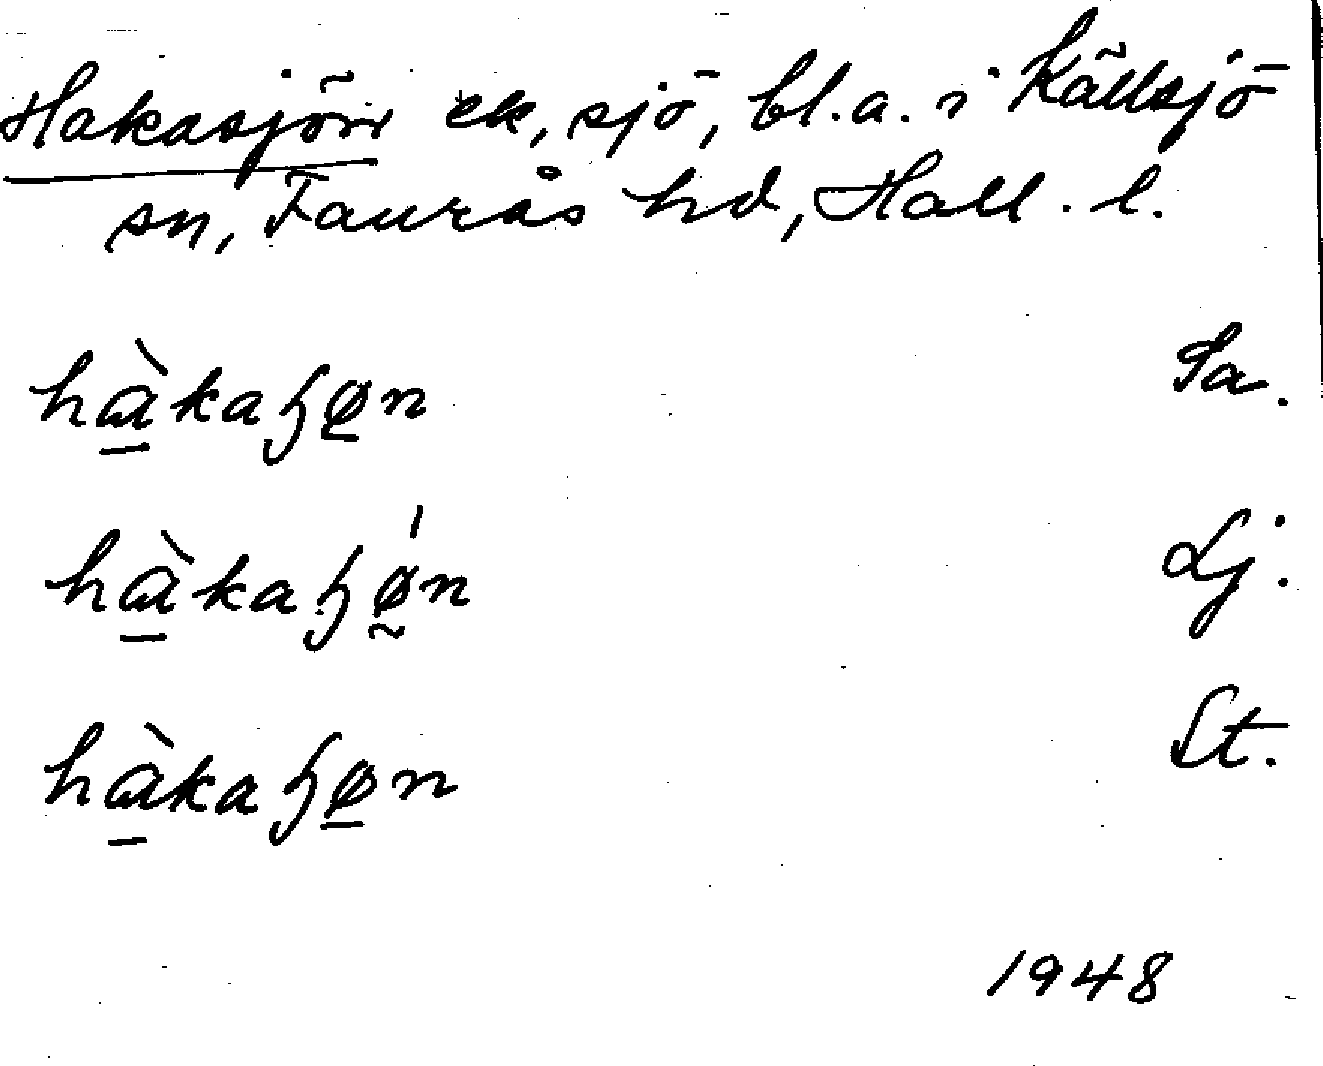 Hakasjön ek, sjö, bl.a. i Källsjö
sn, Faurås hd, Hall. l.
hɑ̱̀kaɧø̱n Sa.
hɑ̱̀kaɧǿ̰n Lj.
hɑ̱̀kaɧø̱n St.
1948